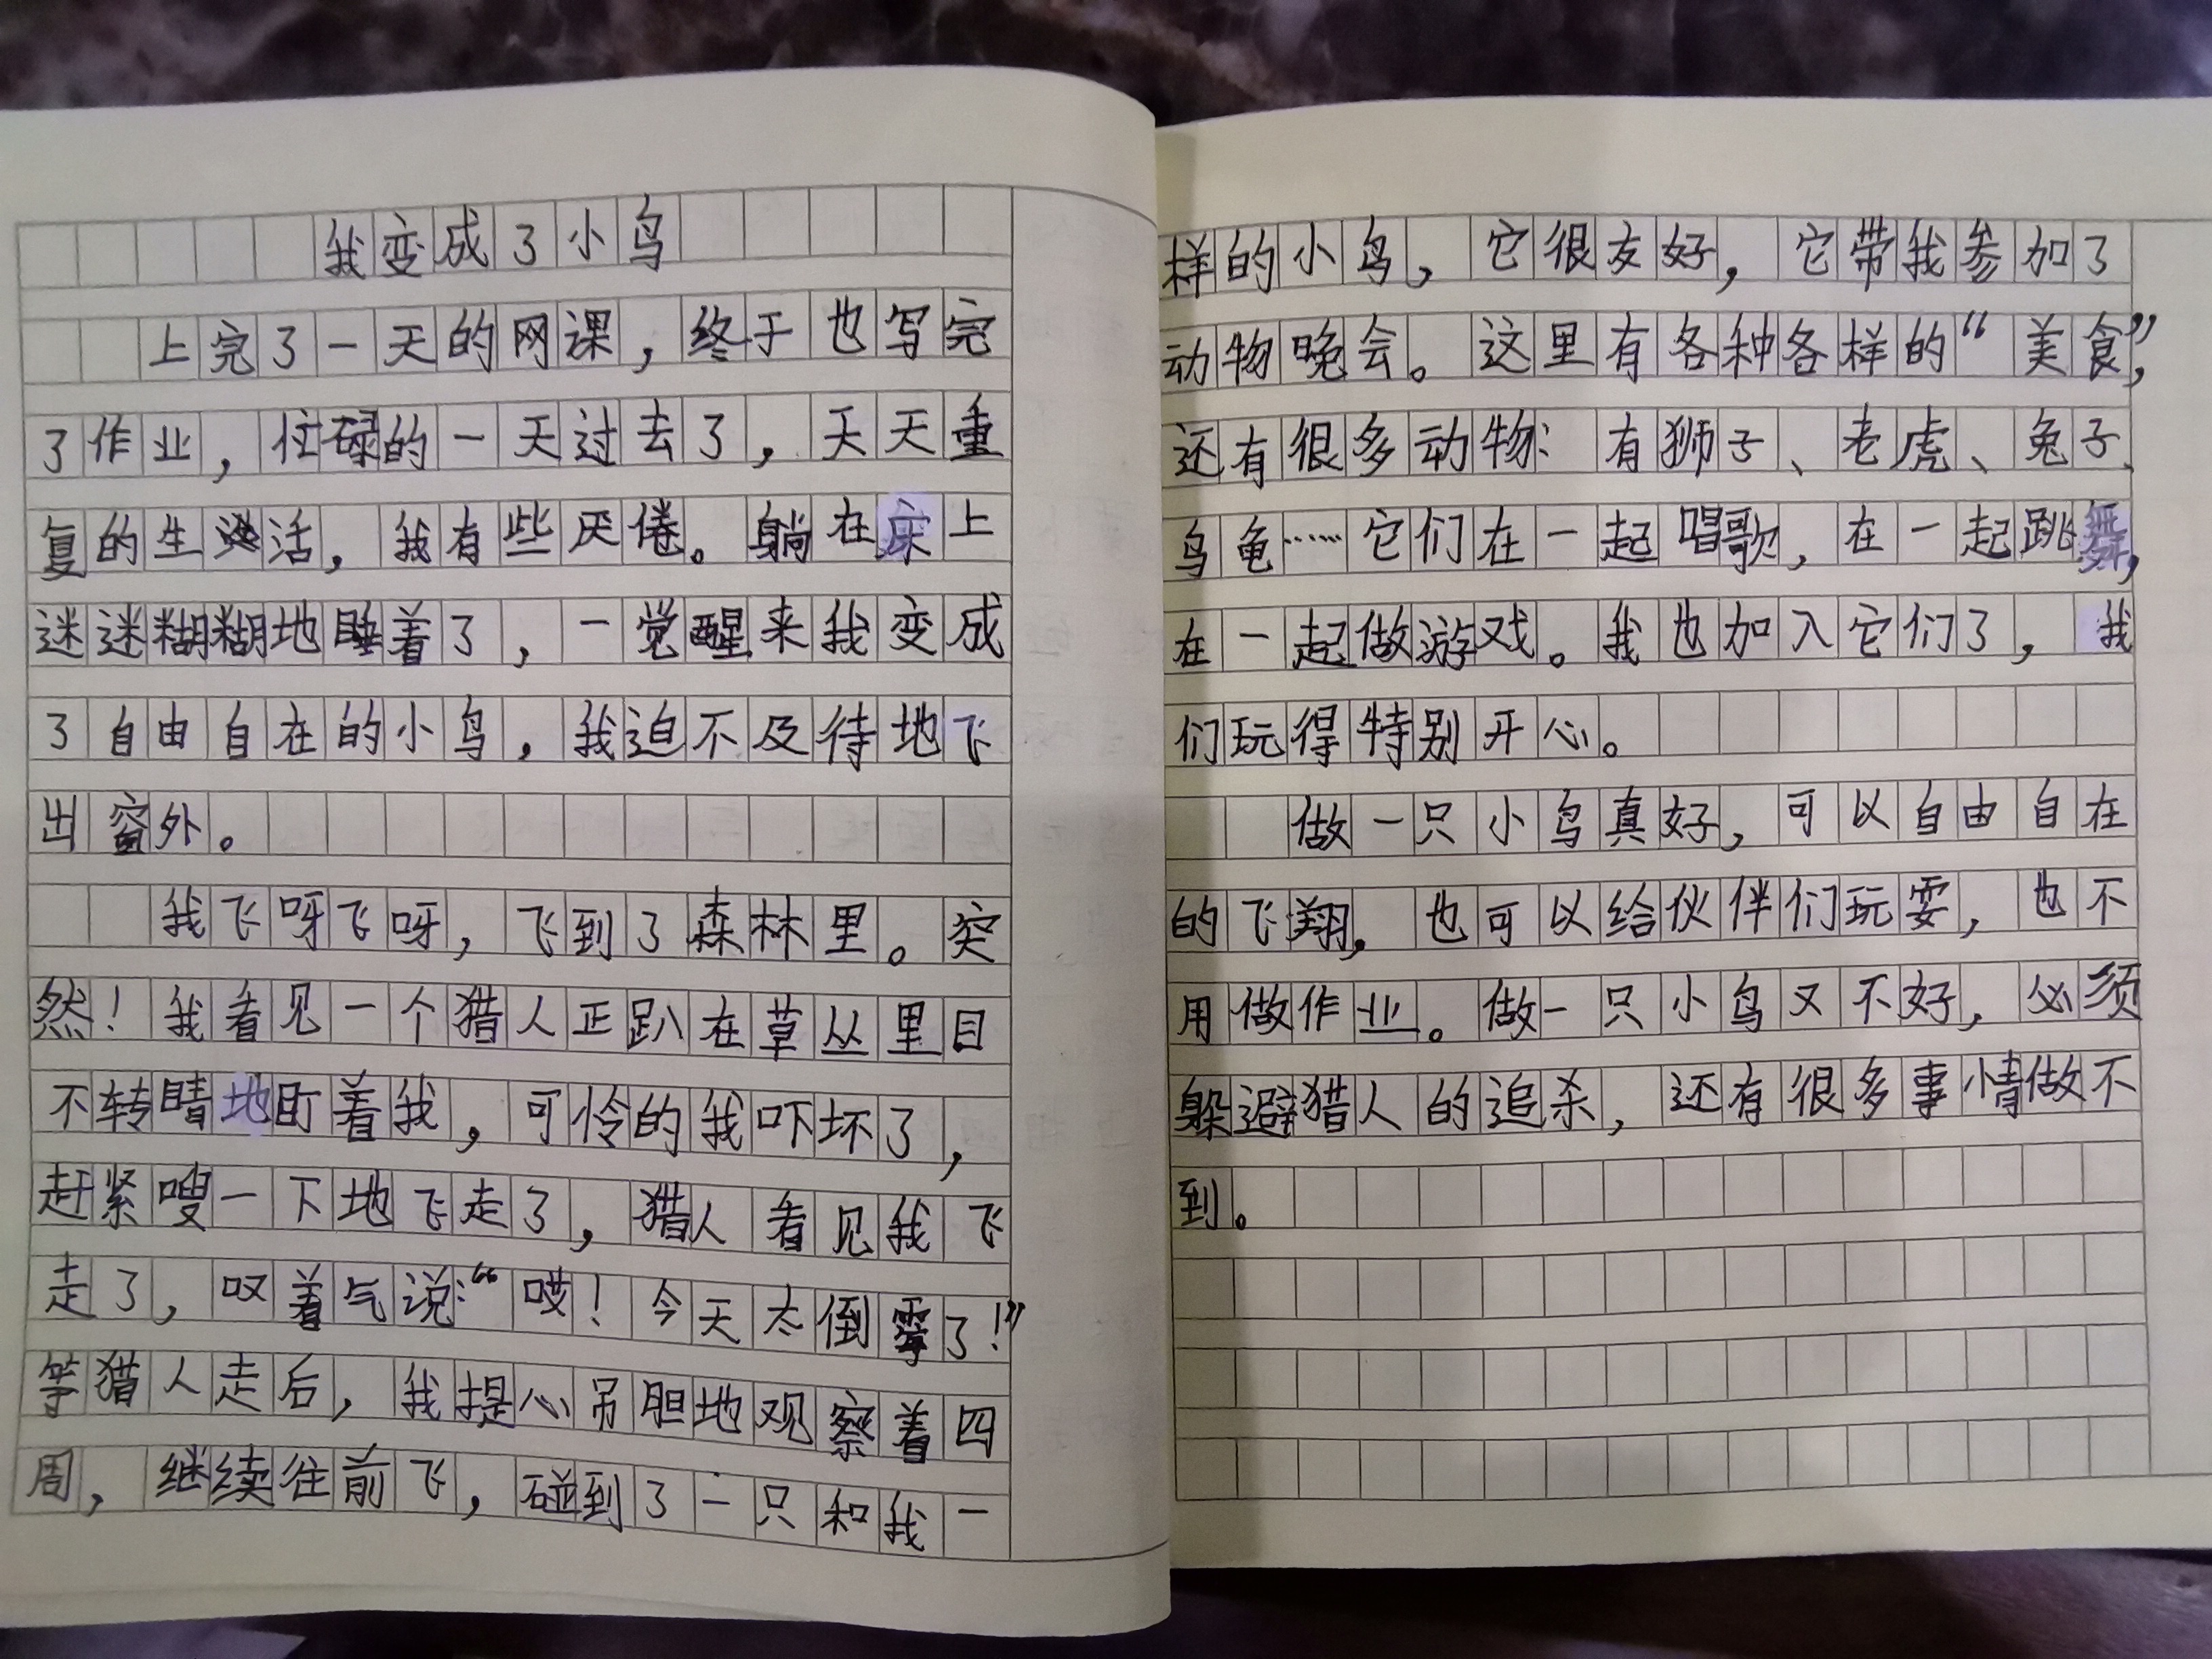 我变成了小鸟
上完了一天的网课，终于也写完
了作业，忙碌的一天过去了，天天重
复的生活，我有些厌倦。躺在床上
迷迷糊糊地睡着了，一觉醒来我变成
了自由自在的小鸟，我迫不及待地飞
出窗外。
我飞呀飞呀，飞到了森林里。突
然！我看见一个猎人正趴在草丛里目
不转睛地盯着我，可怜的我吓坏了，
赶紧嗖一下地飞走了，猎人看见我飞
走了，叹着气说：“哎！今天太倒霉了！”
等猎人走后，我提心吊胆地观察着四
周，继续往前飞，碰到了一只和我一
样的小鸟，它很友好，它带我参加了
动物晚会。这里有各种各样的“美食”，
还有很多动物：有狮子、老虎、兔子、
乌龟……它们在一起唱歌，在一起跳舞，
在一起做游戏。我也加入它们了，我
们玩得特别开心。
做一只小鸟真好，可以自由自在
的飞翔，也可以给伙伴们玩耍，也不
用做作业。做一只小鸟又不好，必须
躲避猎人的追杀，还有很多事情做不
到。